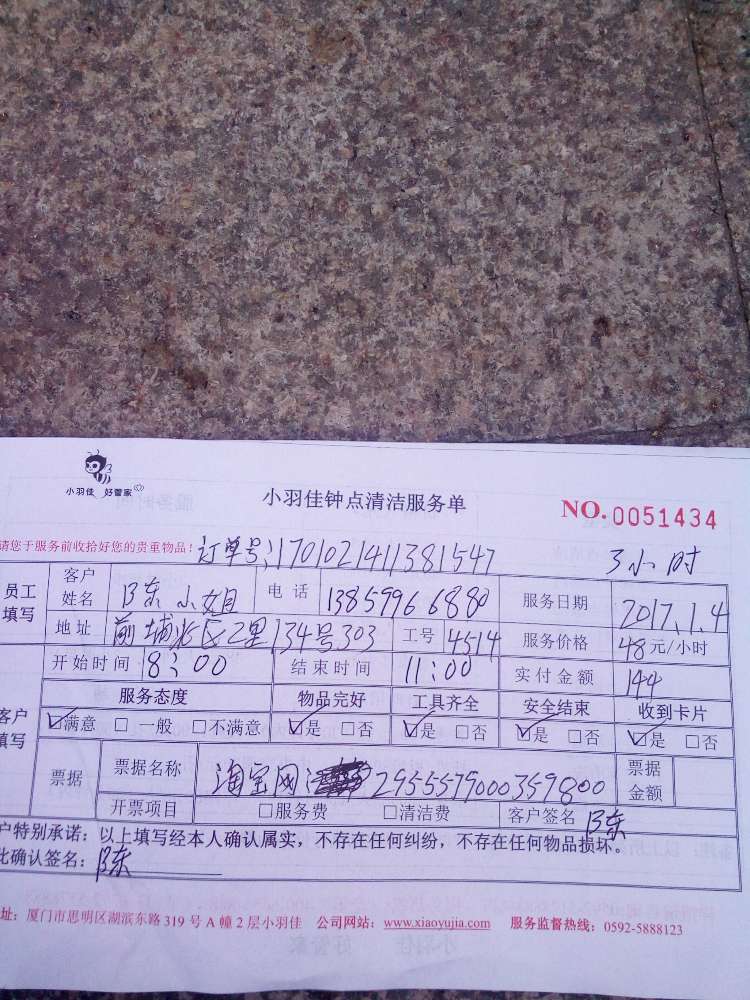 小羽佳 好管家
小羽佳钟点清洁服务单
NO.0051434
请您于服务前收拾好您的贵重物品!
订单号:170102141138 1547 3小时
员工填写 客户姓名 陈小姐 电话 13859966880 服务日期 2017.1.4
地址 前埔北区2里134号303 工号 4514 服务价格 48元/小时
开始时间 8:00 结束时间 11:00 实付金额 144
客户填写 服务态度 物品完好 工具齐全 安全结束 收到卡片
☑满意 □一般 □不满意 ☑是 □否 ☑是 □否 ☑是 □否 ☑是 □否
票据 票据名称 淘宝网 2955579000359800 票据金额
开票项目 □服务费 □清洁费 客户签名 陈
户特别承诺:以上填写经本人确认属实,不存在任何纠纷,不存在任何物品损坏。
此确认签名:陈
址:厦门市思明区湖滨东路319号A幢2层小羽佳 公司网站:www.xiaoyujia.com 服务监督热线:0592-5888123